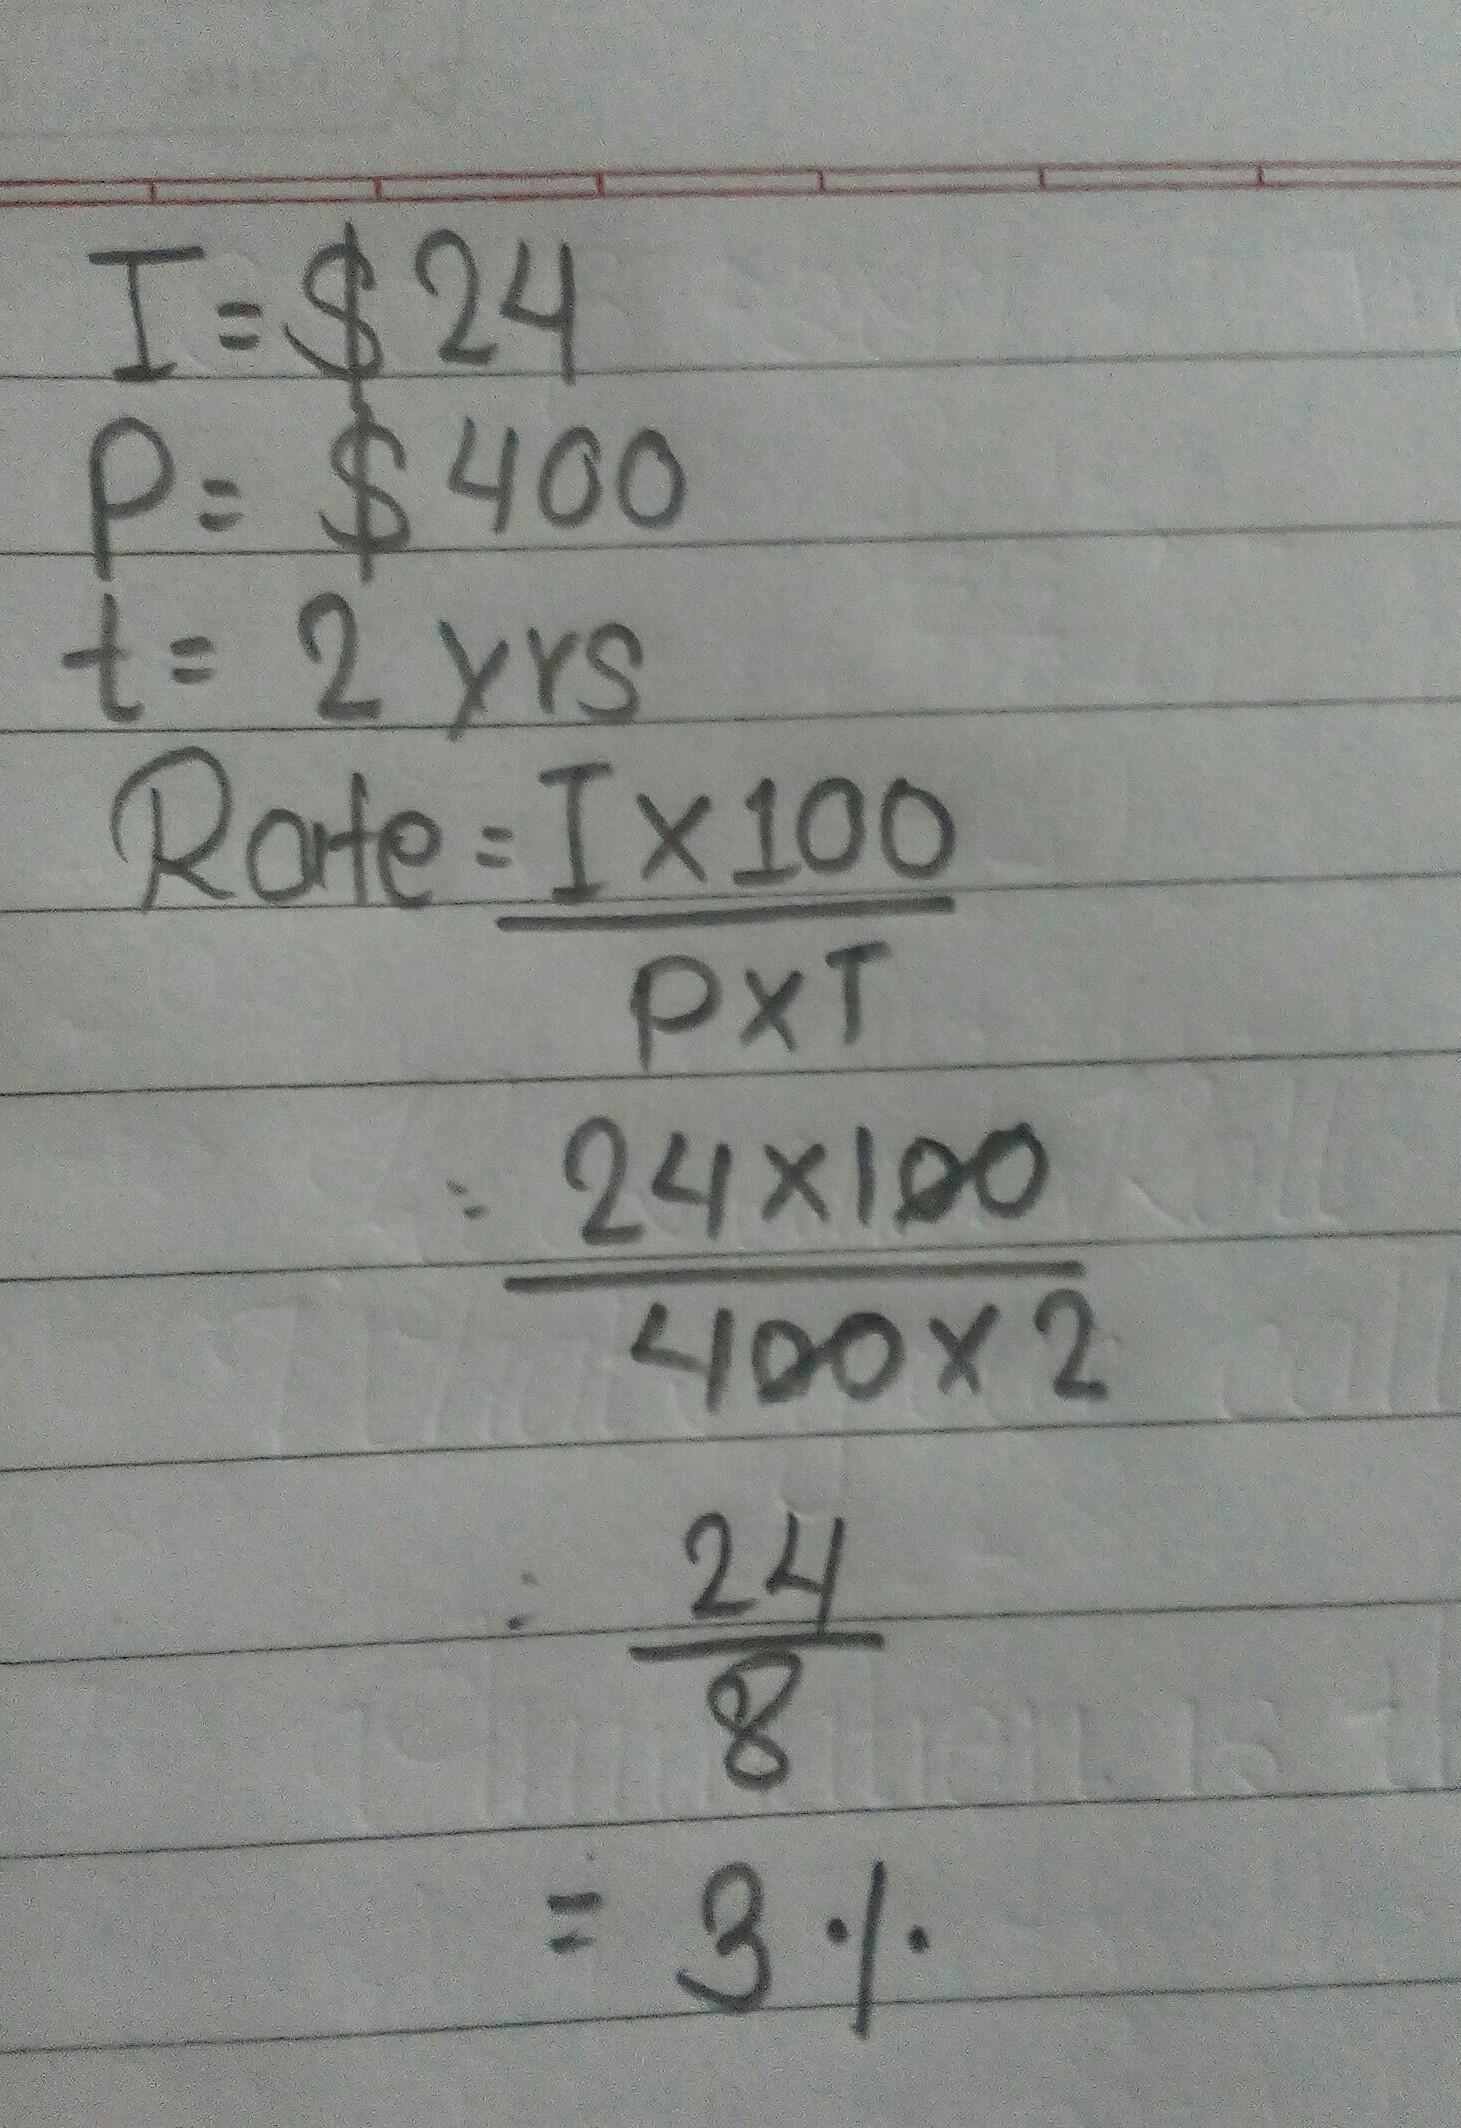 I = $ 24
P = $ 400
t = 2 yrs
Rate = I x 100
P x T
= 24 x 100
400 x 2
= 24
8
= 3 %